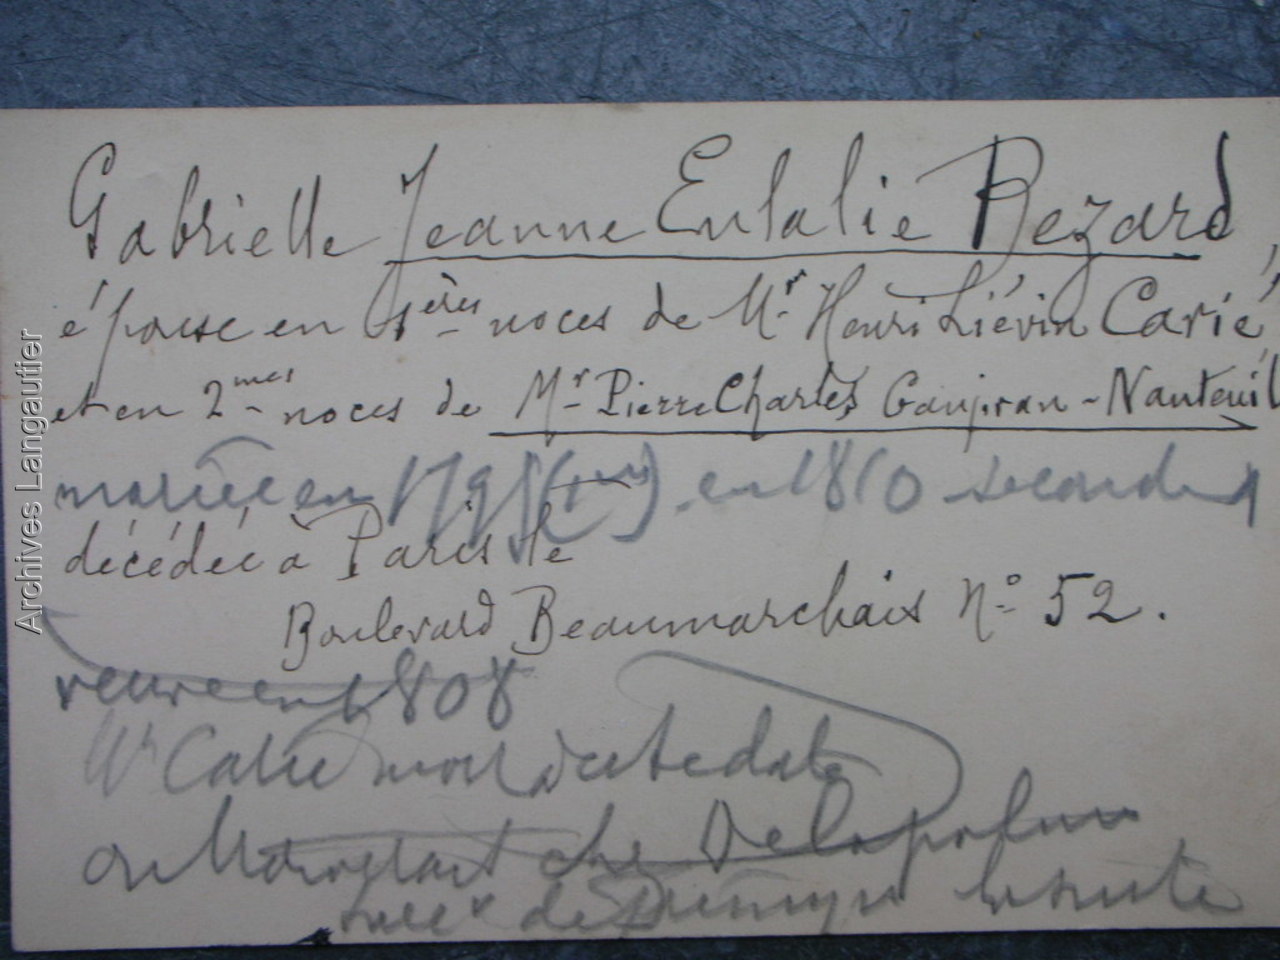 Gabrielle Jeanne Eulalie Bezard,
épouse en 1ères noces de Mr Henri Liévin Carié,
et en 2mes noces de Mr Pierre Charles Gaujran-Nanteuil
mariée en 179 en 1810 secondes
décédée à Paris le
Boulevard Beaumarchais No 52.
veuve en 1808
Mr Carié mort date
on
de la suite
Archives Langautier